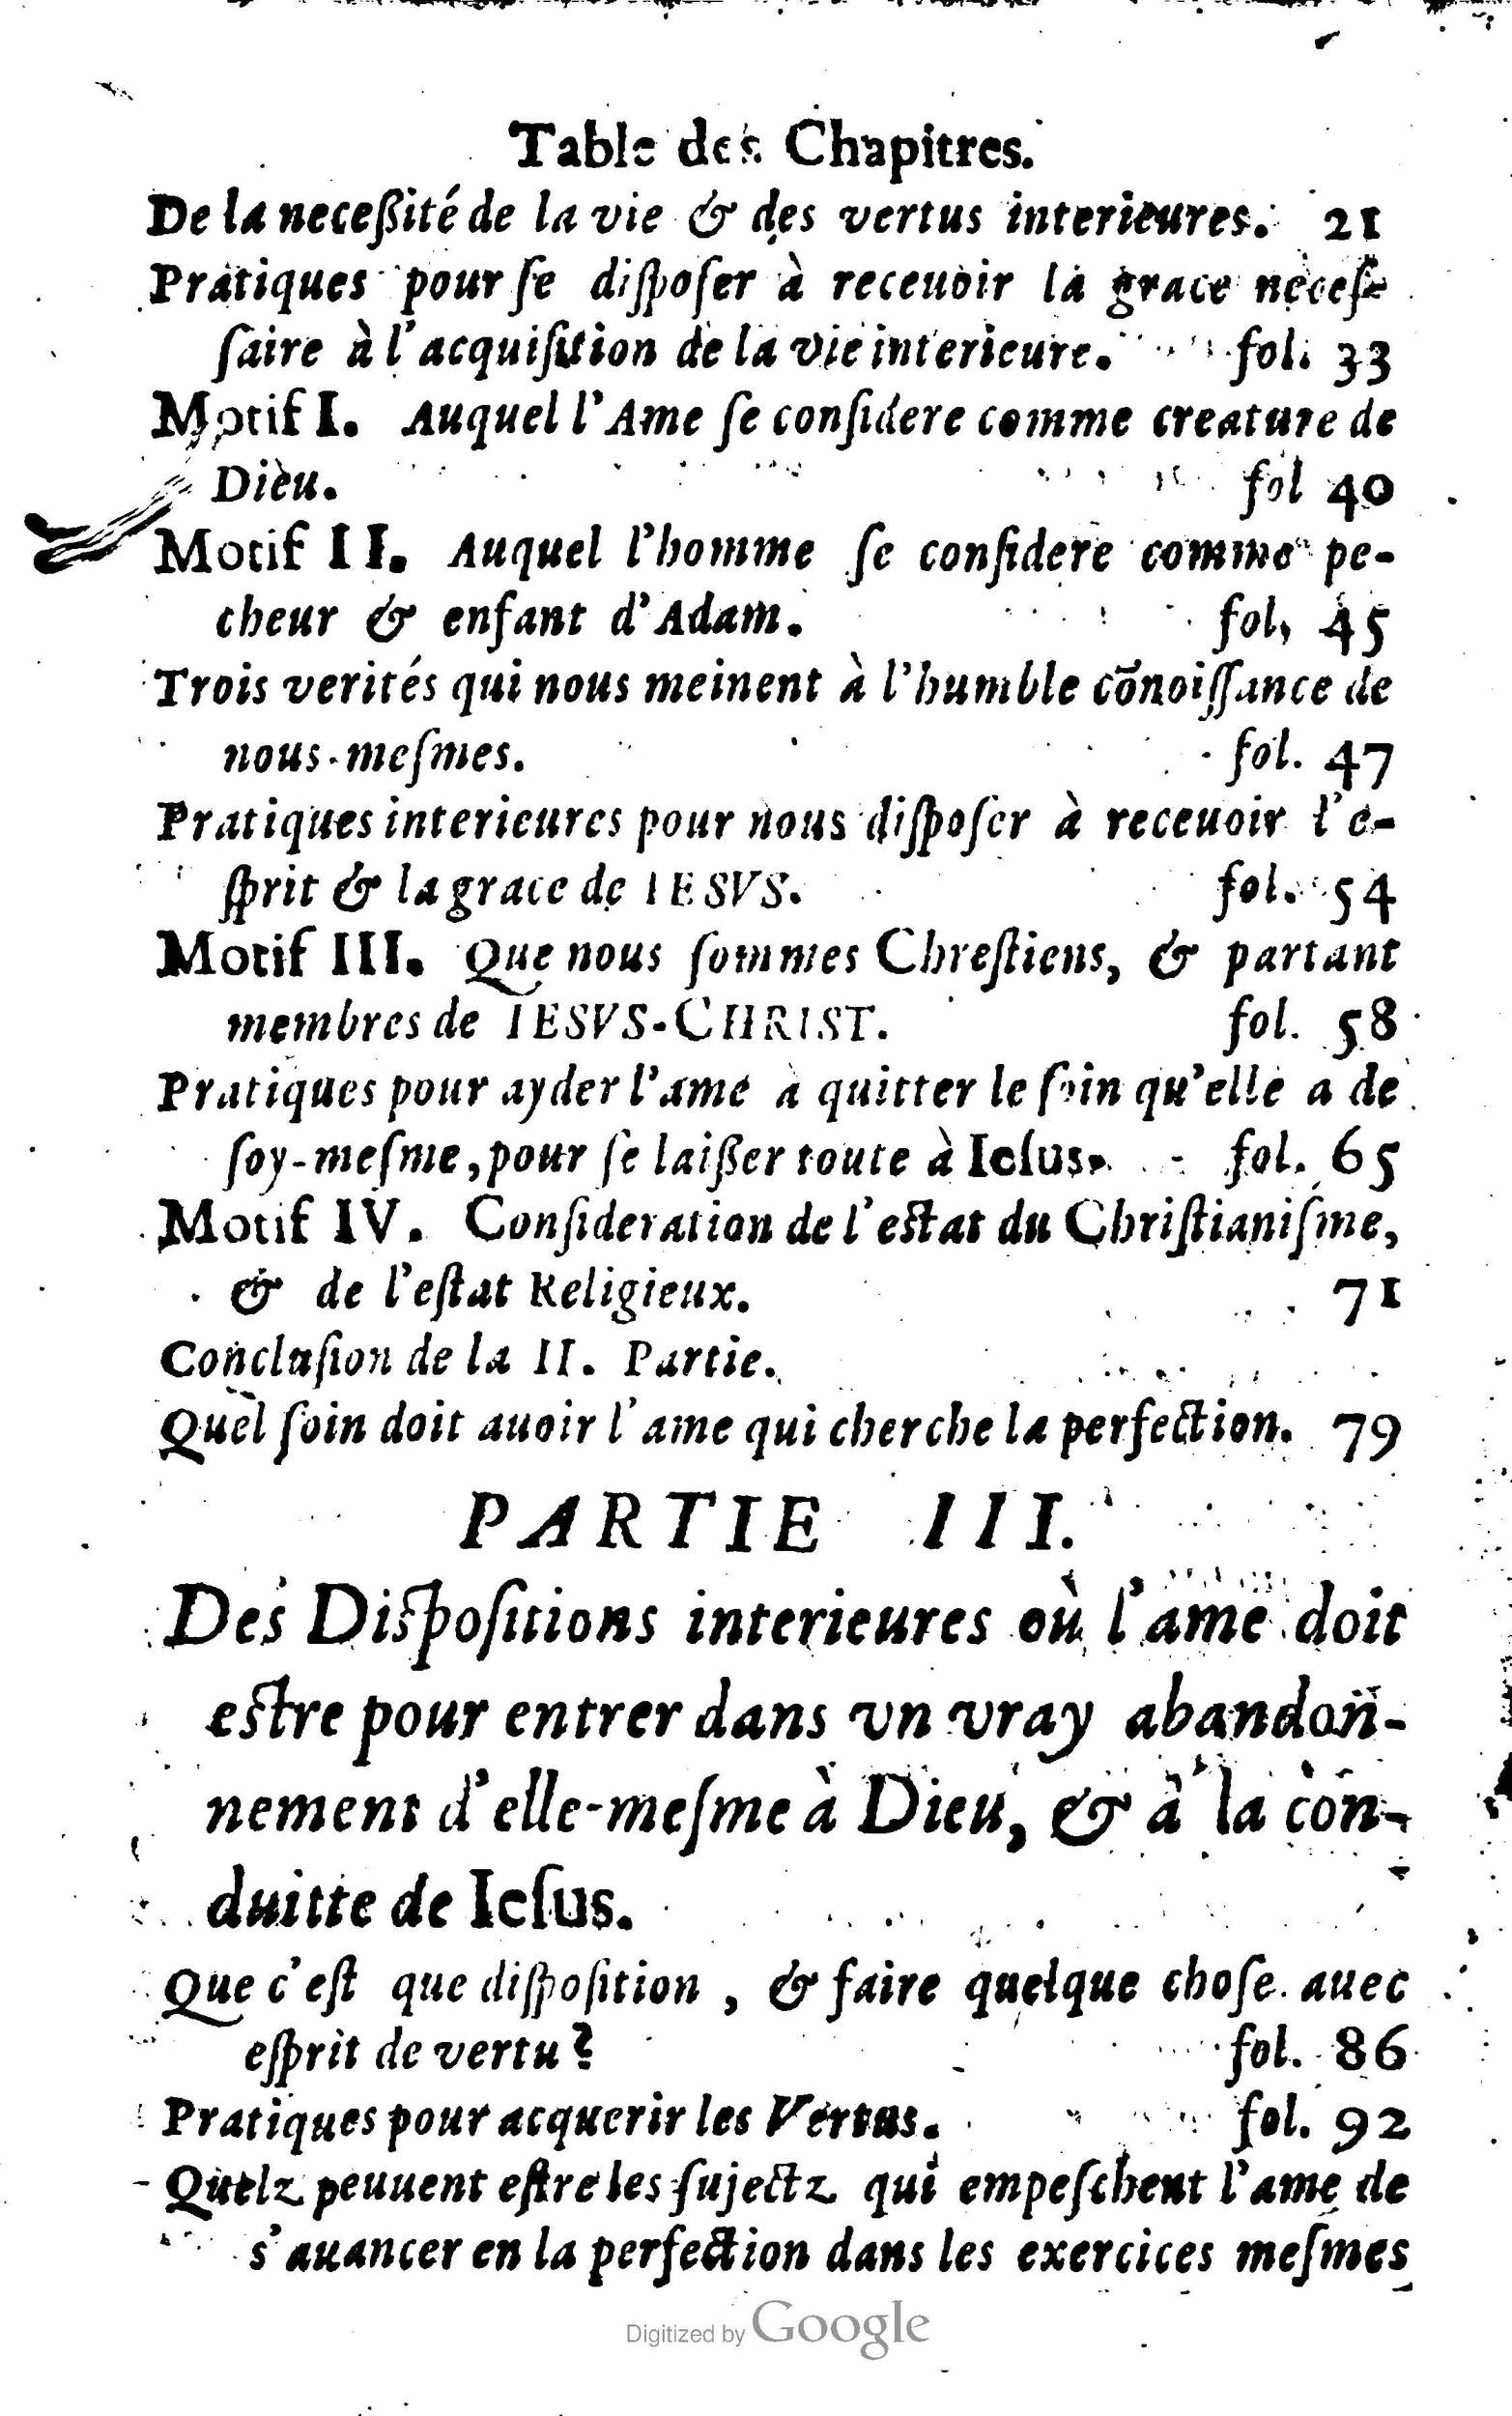 Table des Chapitres.
De la neceßité de la vie & des vertus interieures. 21
Pratiques pour ſe diſpoſer à receuoir la grace neceſ-
ſaire à l'acquiſition de la vie interieure. fol. 33
Motif I. Auquel l'Ame ſe conſidere comme creature de
Dieu. fol 40
Motif II. Auquel l'homme ſe conſidere comme pe-
cheur & enfant d'Adam. fol, 45
Trois verités qui nous meinent à l'humble cõnoiſſance de
nous-meſmes. fol. 47
Pratiques interieures pour nous diſpoſer à receuoir l'e-
ſprit & la grace de IESVS. fol. 54
Motif III. Que nous ſommes Chreſtiens, & partant
membres de IESVS-CHRIST. fol. 58
Pratiques pour ayder l'ame à quitter le ſoin qu'elle a de
ſoy-meſme, pour ſe laißer toute à Ieſus. fol. 65
Motif IV. Conſideration de l'estat du Chriſtianiſme,
& de l'eſtat Religieux. 71
Concluſion de la II. Partie.
Quel ſoin doit auoir l'ame qui cherche la perfection. 79
PARTIE III.
Des Diſpoſitions interieures où l'ame doit
estre pour entrer dans vn vray abandon-
nement d'elle-meſme à Dieu, & à la con-
duitte de Ieſus.
Que c'eſt que diſpoſition, & faire quelque choſe auec
eſprit de vertu? fol. 86
Pratiques pour acquerir les Vertus. fol. 92
Quelz peuuent eſtre les ſujectz qui empeſchent l'ame de
s'auancer en la perfection dans les exercices meſmes
Digitized by Google